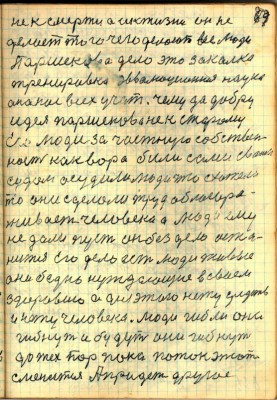 89
не к смерти а к жизни он не
делает того чего делают все люди
Паршекова дело это закалка
тренировка эволюционная наука
она нас всех учит. чему да добру
идея паршекова не к старому
Его люди за частную собствен-
ность как вора били сами своим
судом осудили люди то сказали
то они сделали труд облагора-
живает человека а люди ему
не дали пуст он без дело оста-
нится его дело есть люди живые
они бедно нуждающие в своем
здоровию а для этого нужны средства
и нужу человека. люди гибли они
гибнут и будут они гибнуть
до тех пор пока поток этот
сменится А придет другое